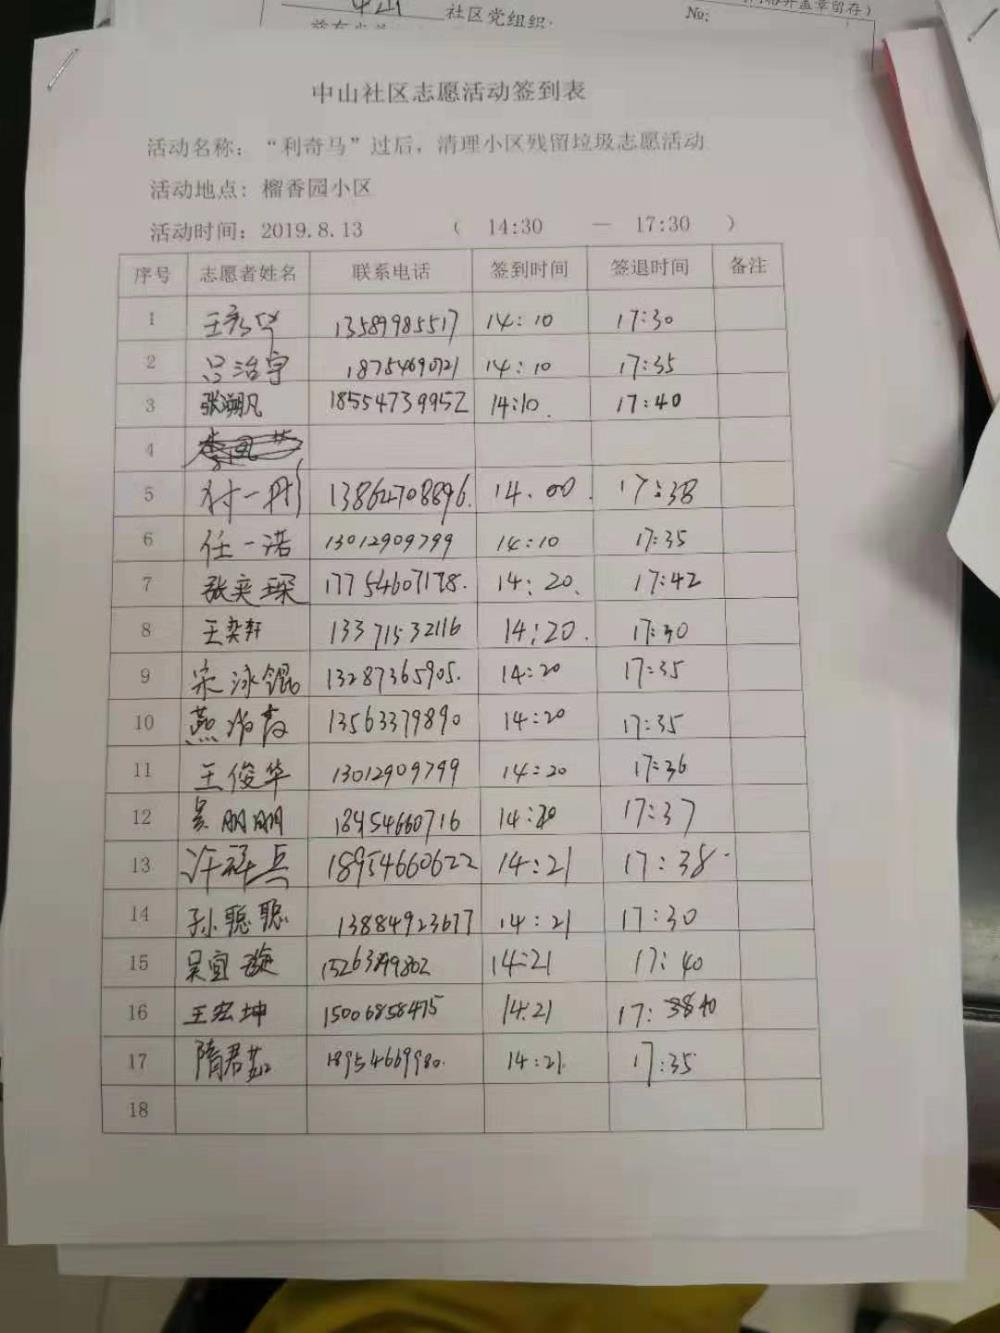 中山 社区党组织
№:
中山社区志愿活动签到表
活动名称：“利奇马”过后，清理小区残留垃圾志愿活动
活动地点：榴香园小区
活动时间：2019.8.13 （ 14:30 — 17:30 ）
序号 志愿者姓名 联系电话 签到时间 签退时间 备注
1 13589985517 14:10 17:30
2 吕治宇 18754690721 14:10 17:35
3 张溯凡 18554739952 14:10. 17:40
4
5 13864708896. 14.00. 17:38
6 任一诺 13012909799 14:10 17:35
7 张奕琛 17754607178. 14:20. 17:42
8 王奕轩 13371532116 14:20. 17:30
9 宋泳锟 13287365905. 14:20 17:35
10 燕 13563379890 14:20 17:35
11 王俊华 13012909799 14:20 17:36
12 吴朋朋 18954660716 14:20 17:37
13 18954660622 14:21 17:38.
14 孙聪聪 13884923677 14:21 17:30
15 吴宜璇 14:21 17:40
16 王宏坤 15006858475 14:21 17:40
17 隋君茹 18954669980. 14:21. 17:35
18